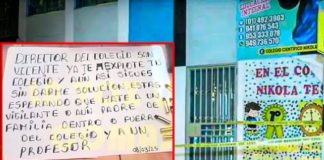 DIRECTOR DEL COLEGIO SAN
VICENTE YA TE EXPLOTE TU
COLEGIO Y AUN ASI SIGUES
SIN DARME SOLUCION ESTAS
ESPERANDO QUE MATE A UN
VIGILANTE O AUN PADRE DE
FAMILIA DENTRO O FUERA
DEL COLEGIO Y A UN
PROFESOR
08/03/25
INTEGRAL
(01) 492 3903
953 333 078
949 736 570
COLEGIO CIENTIFICO NIKOLA
EN EL CO
NIKOLA TES